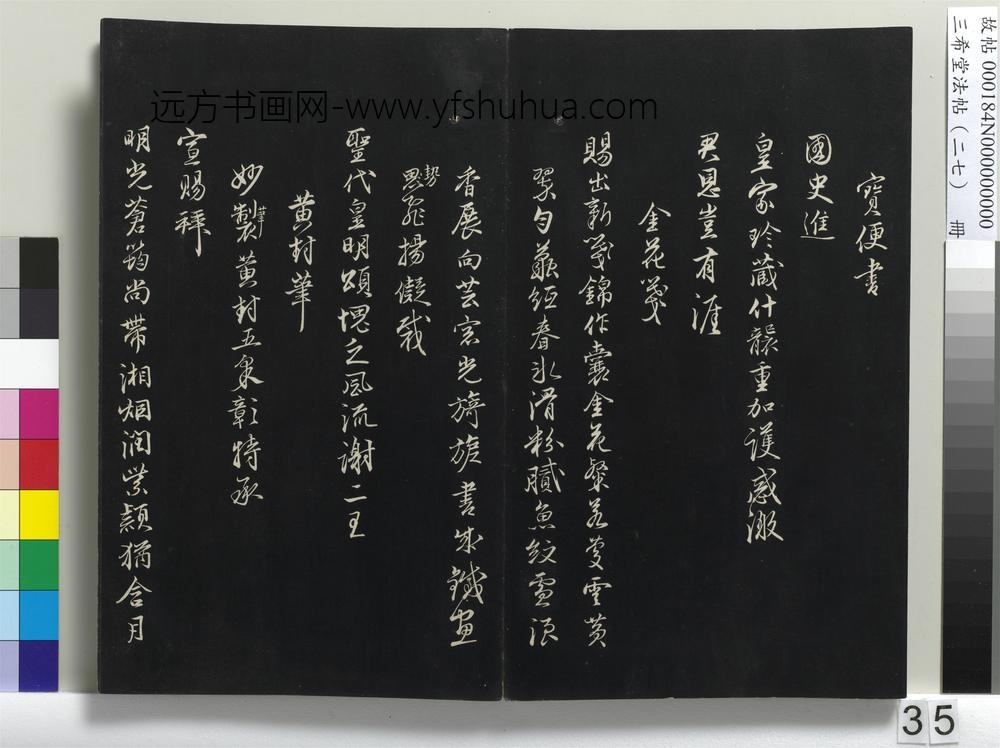 故帖 000184N000000000
三希堂法帖（二七） 冊
远方书画网-www.yfshuhua.com
寶便書
國史進
皇家珍藏什襲重加護感激
君恩豈有涯
金花箋
賜出新箋錦作囊金花粲爛慶雲黃
翠勻 經春冰滑粉膩魚紋雪浪
香展向芸窓光旖旎書成鐵畫
勢飛揚儗裁
聖代皇明頌愧乏風流謝二王
黃封筆
妙製筆黃封五彩彰特承
宣賜拜
明光蒼筠尚帶湘烟潤紫穎猶含月
35